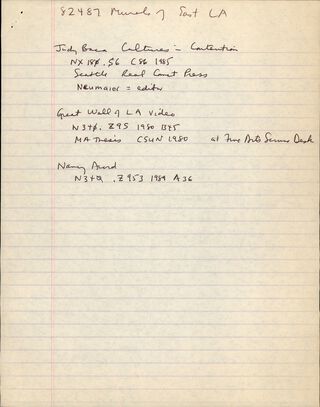 82487 Murals of East LA
Judy Baca Cultures in Contention
NX 180 .S6 C86 1985
Seattle Real Comet Press
Neumaier = editor
Great Wall of LA Video
N340. Z95 1980 B45
MA Thesis CSUN 1980 at Fine Arts Service Desk
Nancy
N340 .Z953 1989 A36